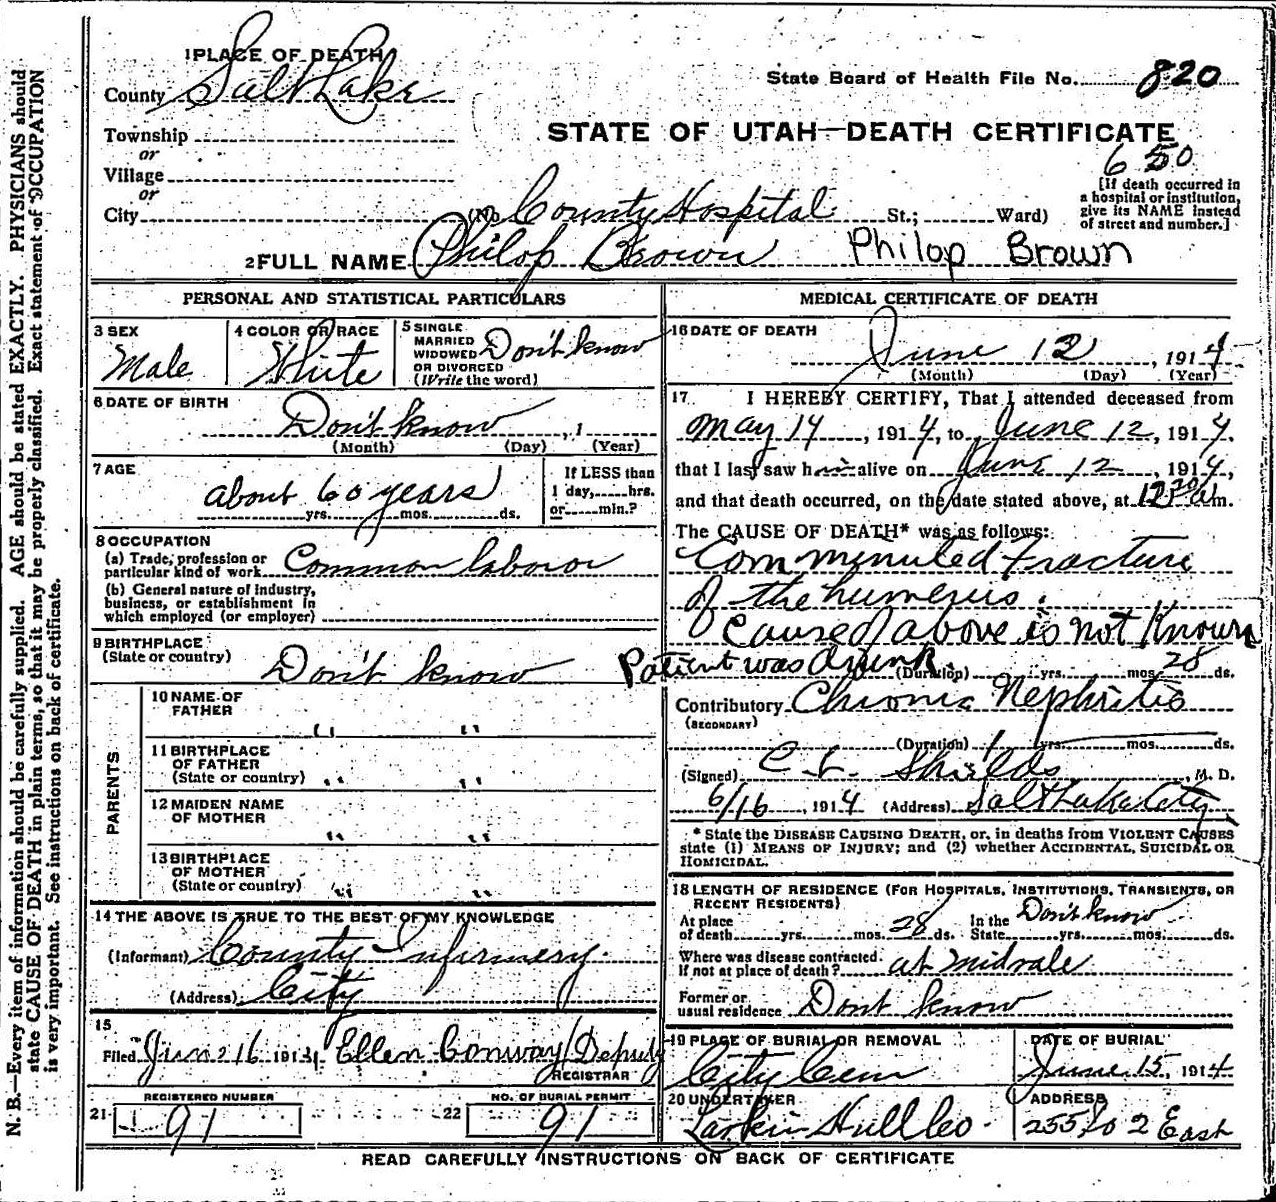 N. B.—Every item of information should be carefully supplied. AGE should be stated EXACTLY. PHYSICIANS should
state CAUSE OF DEATH in plain terms, so that it may be properly classified. Exact statement of OCCUPATION
is very important. See instructions on back of certificate.
1 PLACE OF DEATH
County Salt Lake
State Board of Health File No. 820
Township
or
STATE OF UTAH—DEATH CERTIFICATE
650
Village
or
City (No. County Hospital St.; Ward)
[If death occurred in
a hospital or institution,
give its NAME instead
of street and number.]
2 FULL NAME Philop Brown Philop Brown
PERSONAL AND STATISTICAL PARTICULARS
3 SEX
Male
4 COLOR OR RACE
White
5 SINGLE
MARRIED
WIDOWED
OR DIVORCED
(Write the word)
Don't know
6 DATE OF BIRTH
Don't know , 1
(Month) (Day) (Year)
7 AGE
about 60 years
yrs. mos. ds.
If LESS than
1 day, hrs.
or min.?
8 OCCUPATION
(a) Trade, profession or
particular kind of work Common laboror
(b) General nature of industry,
business, or establishment in
which employed (or employer)
9 BIRTHPLACE
(State or country)
Don't know
PARENTS
10 NAME OF
FATHER
" "
11 BIRTHPLACE
OF FATHER
(State or country) " "
12 MAIDEN NAME
OF MOTHER
" "
13 BIRTHPLACE
OF MOTHER
(State or country) " "
14 THE ABOVE IS TRUE TO THE BEST OF MY KNOWLEDGE
(Informant) County Infirmery
(Address) City
15
Filed June 16 1914 Ellen Conway/Deputy
REGISTRAR
REGISTERED NUMBER
21 91
NO. OF BURIAL PERMIT
22 91
MEDICAL CERTIFICATE OF DEATH
16 DATE OF DEATH
June 12 , 1914
(Month) (Day) (Year)
17 I HEREBY CERTIFY, That I attended deceased from
May 14 , 1914, to June 12, 1914,
that I last saw him alive on June 12 , 1914,
and that death occurred, on the date stated above, at 12 20 m.
The CAUSE OF DEATH* was as follows:
Comminuted fracture
of the humerus.
Cause of above is not Known
Patient was drunk. (Duration) yrs. mos. 28 ds.
Contributory Chronic Nephritis
(SECONDARY)
(Duration) 1 yrs. mos. ds.
(Signed) C. L. Shields, M. D.
6/16 , 1914 (Address) Salt Lake City
* State the DISEASE CAUSING DEATH, or, in deaths from VIOLENT CAUSES
state (1) MEANS OF INJURY; and (2) whether ACCIDENTAL, SUICIDAL OR
HOMICIDAL.
18 LENGTH OF RESIDENCE (FOR HOSPITALS, INSTITUTIONS, TRANSIENTS, OR
RECENT RESIDENTS)
At place
of death yrs. mos. 28 ds.
In the
State Don't know yrs. mos. ds.
Where was disease contracted
if not at place of death? at Midvale
Former or
usual residence Dont know
19 PLACE OF BURIAL OR REMOVAL
City Cem
DATE OF BURIAL
June 15, 1914
20 UNDERTAKER
Larkin Hull Co.
ADDRESS
255 So 2 East
READ CAREFULLY INSTRUCTIONS ON BACK OF CERTIFICATE